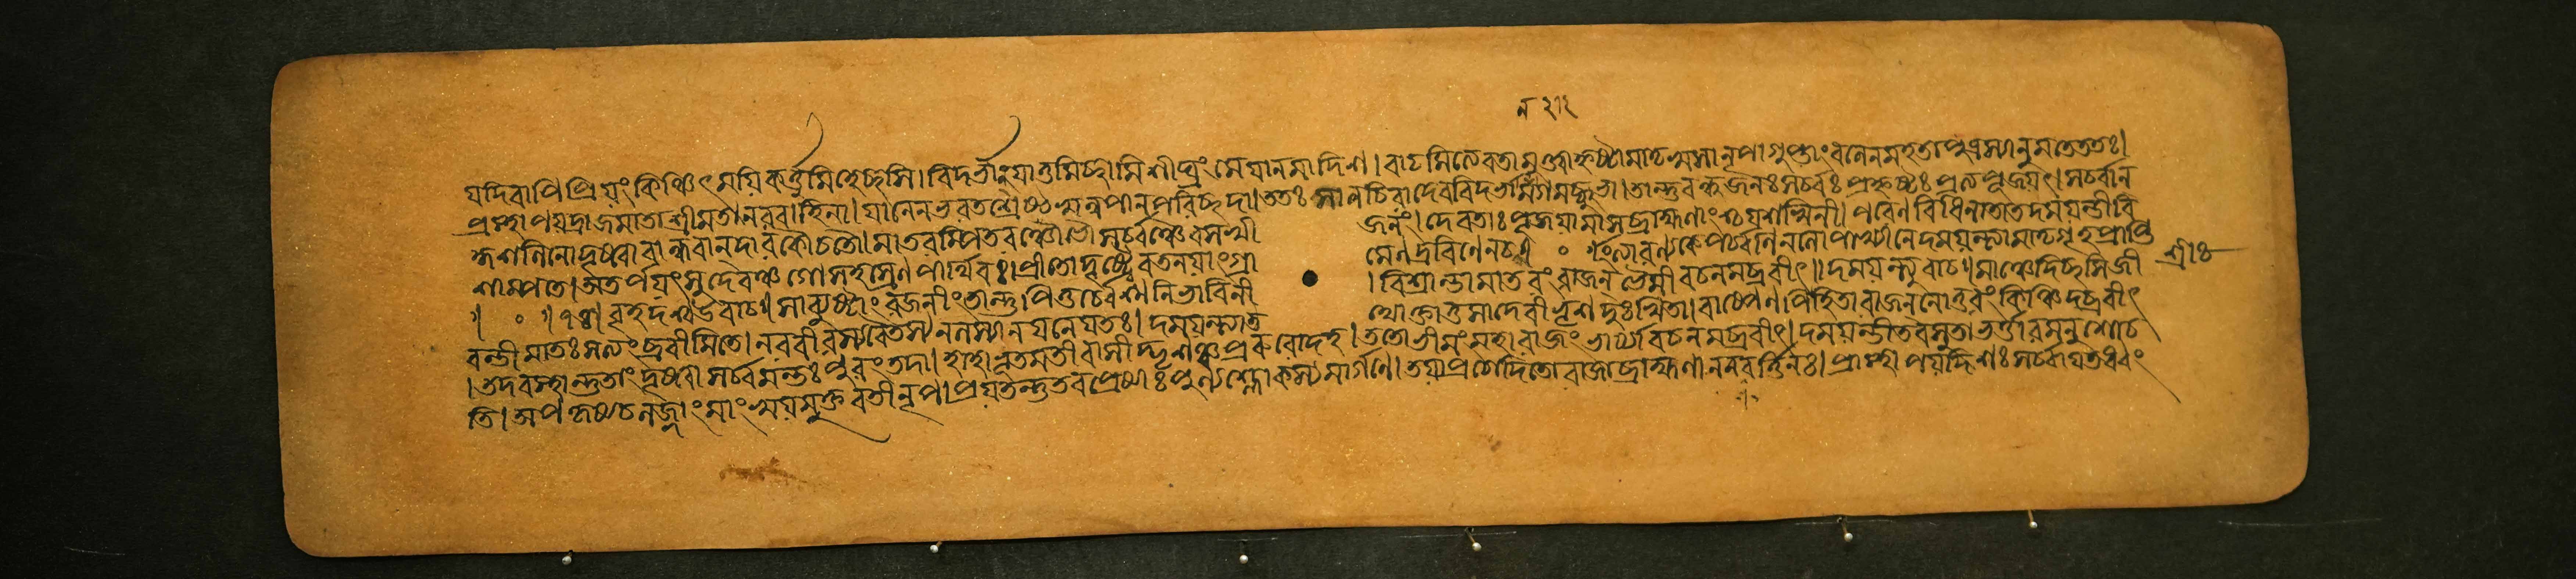 ন ২১২
যদিবাপিপ্রিয়ংকিঞ্চিৎময়িকর্ত্তুমিহেচ্ছসি। বিদর্ভান্যাতুমিচ্ছামিশীঘ্রংমেযানমাদিশ। বাঢমিত্যেবতামুক্ত্বাহৃষ্টামাতৃষ্বসানৃপ। গুপ্তাংবলেনমহতাপুত্রস্যানুমতেততঃ।
প্রস্থাপয়দ্রাজমাতাশ্রীমতানরবাহিনা। যানেনভরতশ্রেষ্ঠস্বন্নপানপরিচ্ছদা। ততঃ সানচিরাদেববিদর্ভানগমচ্ছুভা। তান্তুবন্ধুজনঃসর্ব্বঃ প্রহৃষ্টঃ প্রত্যপূজয়ৎ। সর্ব্বান
কুশলিনোদৃষ্ট্বাবান্ধবান্দারকৌচতৌ। মাতরম্পিতরঞ্চোভৌসর্ব্বঞ্চৈবসখী জনং। দেবতাঃপূজয়ামাসব্রাহ্মণাংশ্চযশস্বিনী। পরেণবিধিনা দময়ন্তীবি
শাম্পতে। অতর্পয়ৎসুদেবঞ্চগোসহস্রেণপার্থিবঃ। প্রীতোদৃষ্ট্বৈবতনয়াংগ্রা মেণদ্রবিণেনচ॥ ॰ ॥ইত্যারণ্যকেপর্ব্বণিনলোপাখ্যানেদময়ন্ত্যামাতৃগৃহপ্রাপ্তি শ্রীঃ
॥ ॰ ॥ বৃহদশ্বউবাচ॥ সাব্যুষ্টাংরজনীংতান্তুপিতুর্ব্বেশ্মনিভাবিনী। বিশ্রান্তামাতরংরাজন্ বচনমব্রবীৎ॥ দময়ন্ত্যুবাচ॥ মাঞ্চেদিচ্ছসিজী
বন্তীমাতঃসত্যংব্রবীমিতে। নরবীরস্যবৈতস্যনলস্যানয়নেযতঃ। দময়ন্ত্যাত থোক্তাতুসাদেবীভৃশদুঃখিতা। বাষ্পেণপিহিতারাজন্নোত্তরংকিঞ্চিদব্রবীৎ
। তদবস্থান্তুতাংদৃষ্ট্বাসর্ব্বমন্তঃপুরংতদা। হাহাভূতমতীবাসীদ্ভৃশঞ্চপ্ররুরোদহ। ততোভীমংমহারাজ ভার্য্যাবচনমব্রবীৎ। দময়ন্তীতবসুতাভর্ত্তারমনুশোচ
তি। অপকৃষ্যচলজ্জাংমাংস্বয়মুক্তবতীনৃপ। প্রয়তন্তুতবপ্রেষ্যাঃপুণ্যশ্লোকস্যমার্গণে। তয়াপ্রচোদিতোরাজাব্রাহ্মণানবশবর্ত্তিনঃ। প্রাস্থাপয়দ্দিশঃসর্ব্বাযতধ্বং